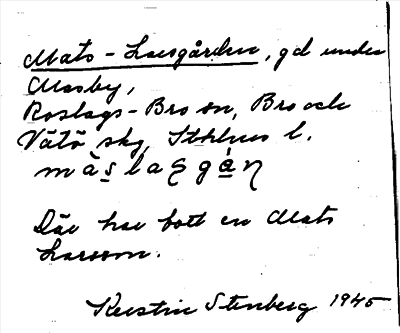 Mats-Larsgården, gd under
Massby,
Roslags-Bro sn, Bro och
Vätö skg, Sthlms l.
Där har bott en Mats
Larsson.
Kerstin Stenberg 1945